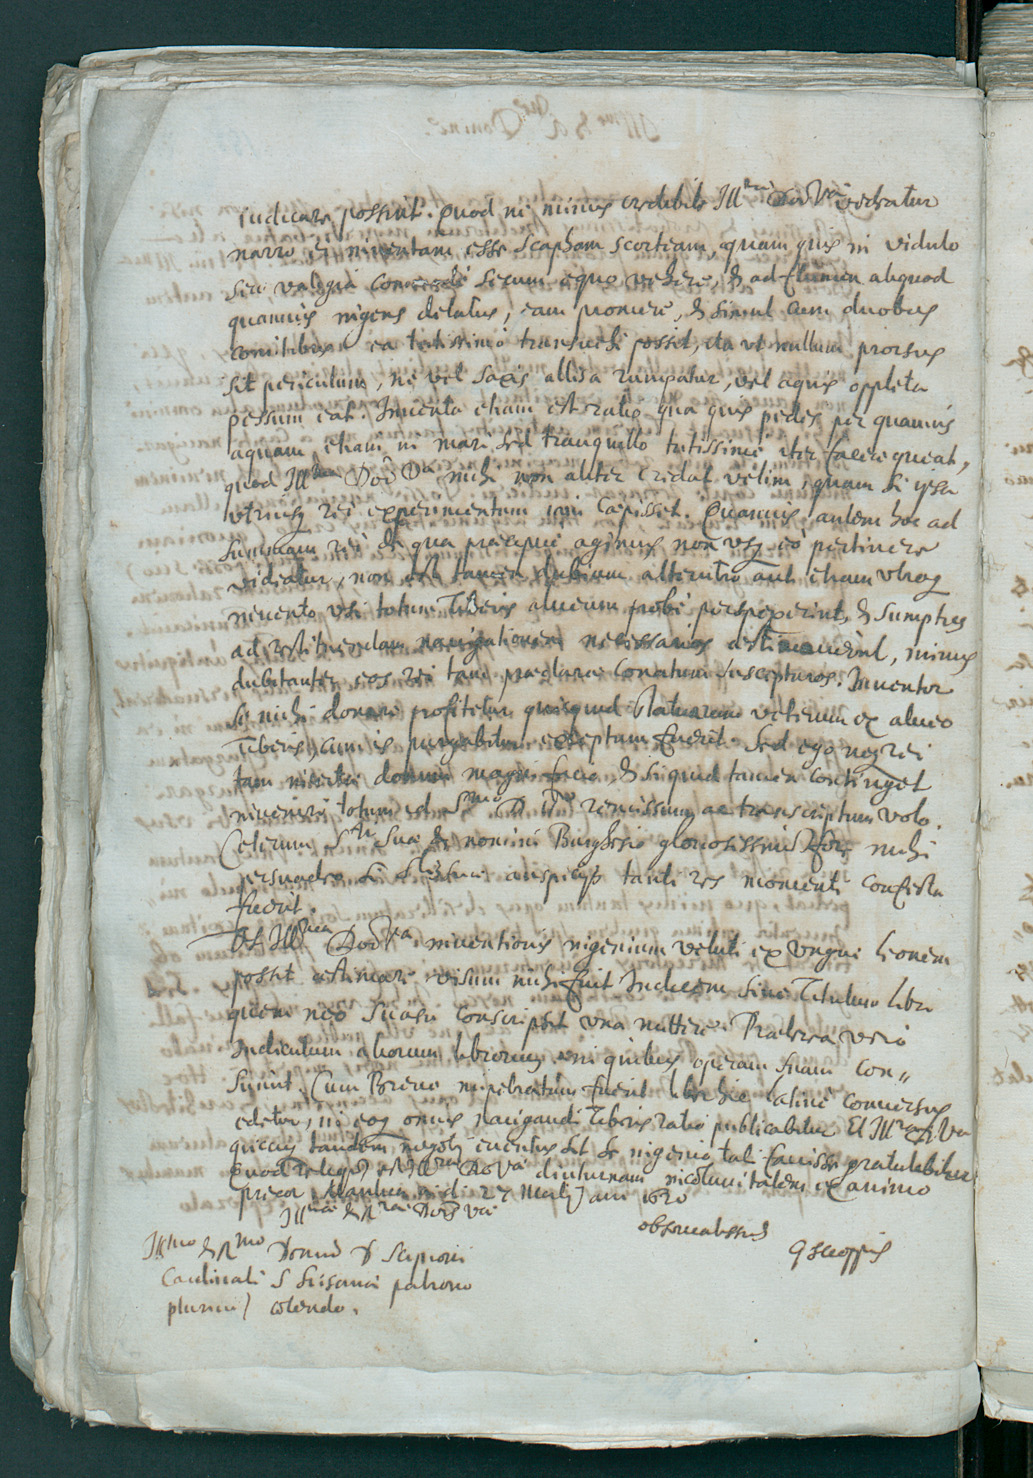 iudicare possint. Quod ni minus credibile Ill.ma Dõo V.a videatur
narro ei inventam esse scapham scorteam, quam quis in vidulo
seu valigia secum equo vehere, & ad flumen aliquod
quamvis ingens delatus, eam promere, & simul cum duobus
comitibus ea tutissimè transvehi possit, ita ut nullum prorsus
sit periculum, ne vel saxis allisa rumpatur, vel aquis oppleta
pessum eat. Inventa etiam est ratio qua quis pedes per quamvis
aquam, etiam in mari sed tranquillo tutissimè iter facere queat,
quod Ill.ma Dõo V.a mihi non aliter credat velim, quam si ipsa
utriusq rei experimentum cepisset. Quamvis autem hoc ad
summam rei de qua praecipuè agimus non usq eò pertinere
videatur, non est tamen dubium alterutro aut etiam utroq
invento usi totum Tiberis alveum probè perspexerint, & sumptus
ad restituendam navigationem necessarios aestimaverint, minus
dubitanter eos rei tam praeclarae conatum suscepturos. Inventor
se mihi donare profitetur quicquid statuarum veterum ex alveo
Tiberis, cum is purgabitur exceptum fuerit. Sed ego neq rei
tam incertae donum magni facio, & siquid tamen continget
inveniri totum id S.mo D N.ro remissum ac transcriptum volo.
Ceterum S.ti Suae & nomini Burghesio gloriosissimum fore mihi
persuadeo si auspicijs tanti res momenti confecta
fuerit.
Ut Ill.ma Dõo V.ra inventionis ingenium veluti ex ungue leonem
possit aestimare, visum mihi fuit Indicem sive Titulum libri
quem meo suasu conscripsit una mittere. Praeterea verò
Indiculum aliorum librorum in quibus operam suam con„
sumit. Cum Breve impetratum fuerit liber hic latinè conversus
edetur, in eoq omnis navigandi Tiberis ratio publicabitur. Et Ill.ma D. V.a
quicuis tandem negotij eventus sit se ingenio tali favisse gratulabitur
Quod reliquum est Ill.mae Dõo V.ae diuturnam incolumitatem ex animo
precor. Mantua 27 Maij anni 1620
Ill.mae & R.mae Dõis V.ae
observantissimus
G Scioppius
Ill.mo & R.mo Domino D Scipioni
Cardinali S Susannae patrono
plurimum colendo.